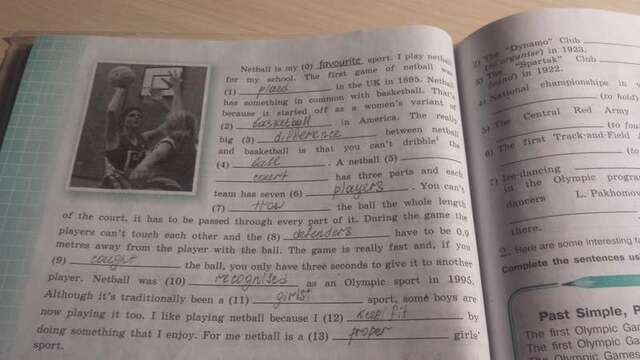 Netball is my (0) favourite sport. I play netball
for my school. The first game of netball was
(1) plaed in the UK in 1895. Netball
has something in common with basketball. That's
because it started off as a women's variant of
(2) basketball in America. The really
big (3) difference between netball
and basketball is that you can't dribble the
(4) ball. A netball (5)
court has three parts and each
team has seven (6) players. You can't
(7) the ball the whole length
of the court, it has to be passed through every part of it. During the game the
players can't touch each other and the (8) defenders have to be 0.9
metres away from the player with the ball. The game is really fast and, if you
(9) caught the ball, you only have three seconds to give it to another
player. Netball was (10) recognised as an Olympic sport in 1995.
Although it's traditionally been a (11) girls' sport, some boys are
now playing it too. I like playing netball because I (12) keep fit by
doing something that I enjoy. For me netball is a (13) proper girls'
sport.
2) The "Dynamo" Club
(to organise) in 1923.
3) The "Spartak" Club
found) in 1922.
4) National championships in
(to hold)
5) The Central Red Army
(to fou
6) The first Track-and-Field
(to
7) Ice-dancing
in the Olympic progra
dancers L. Pakhomov
there.
2. Here are some interesting fa
Complete the sentences us
Past Simple, P
The first Olympic Gam
The first Olympic Ga
Olympic Games